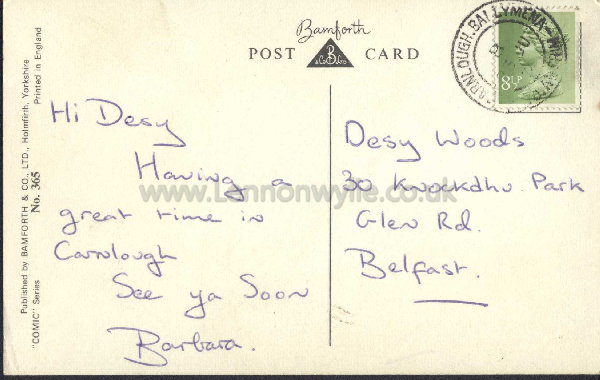 Bamforth
POST CARD
B
& Co Ltd
CARNLOUGH.BALLYMENA
8½P
Published by BAMFORTH & CO., LTD., Holmfirth, Yorkshire
Printed in England
No. 365
"COMIC" Series
Hi Desy
Having a
great time in
Carnlough
See ya Soon
Barbara.
Desy Woods
30 Knockdhu Park
Glen Rd.
Belfast.
www.Lennonwylie.co.uk